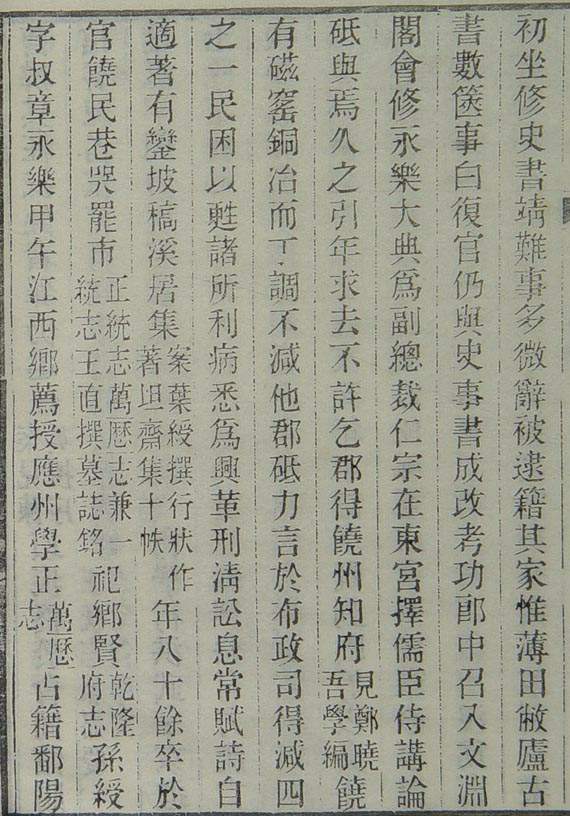 初坐修史書靖難事多微辭被逮籍其家惟薄田敝廬古
書數篋事白復官仍與史事書成改考功郎中召入文淵
閣會修永樂大典爲副總裁仁宗在東宮擇儒臣侍講論
砥與焉久之引年求去不許乞郡得饒州知府見鄭曉吾學編饒
有磁窰銅冶而丁調不減他郡砥力言於布政司得減四
之一民困以甦諸所利病悉爲興革刑淸訟息常賦詩自
適著有鑾坡稿溪居集案葉綬撰行狀作著坦齋集十帙年八十餘卒於
官饒民巷哭罷市正統志萬厯志兼一統志王直撰墓誌銘祀鄉賢乾隆府志孫綬
字叔章永樂甲午江西鄉薦授應州學正萬厯志占籍鄱陽